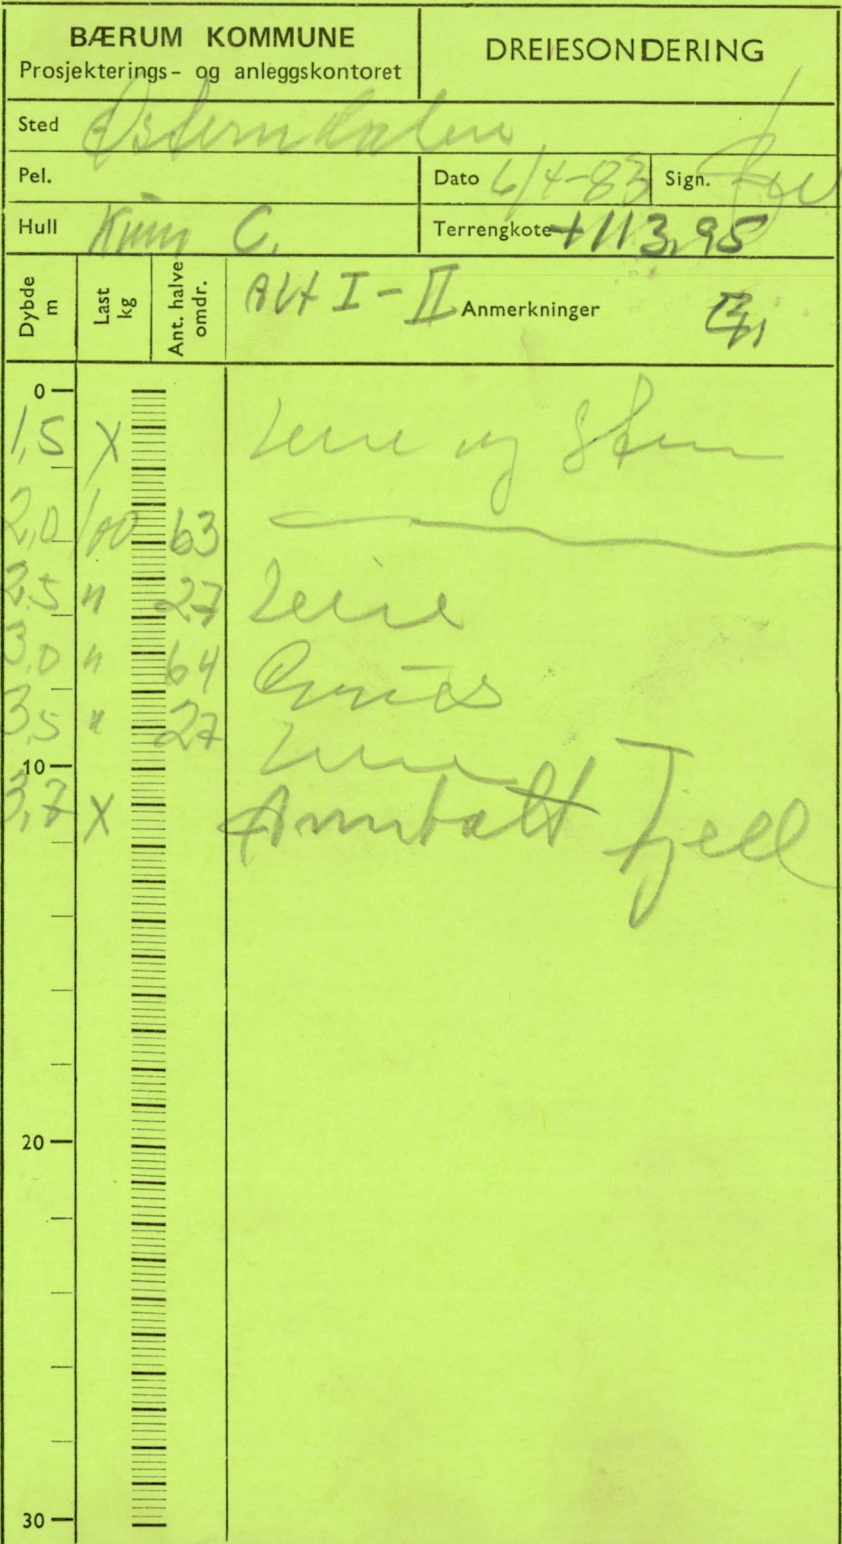 BÆRUM KOMMUNE
Prosjekterings- og anleggskontoret
DREIESONDERING
Sted Østerndalen
Pel.
Dato 6/4-83 Sign.
Hull C.
Terrengkote +113,95
Dybde m
Last kg
Ant. halve omdr.
Alt I-II Anmerkninger
0
1,5 X Leire og Sten
2,0 100 63
2,5 " 27 Leire
3,0 " 64 Grus
3,5 " 27 Leire
10
3,7 X Antatt Fjell
20
30